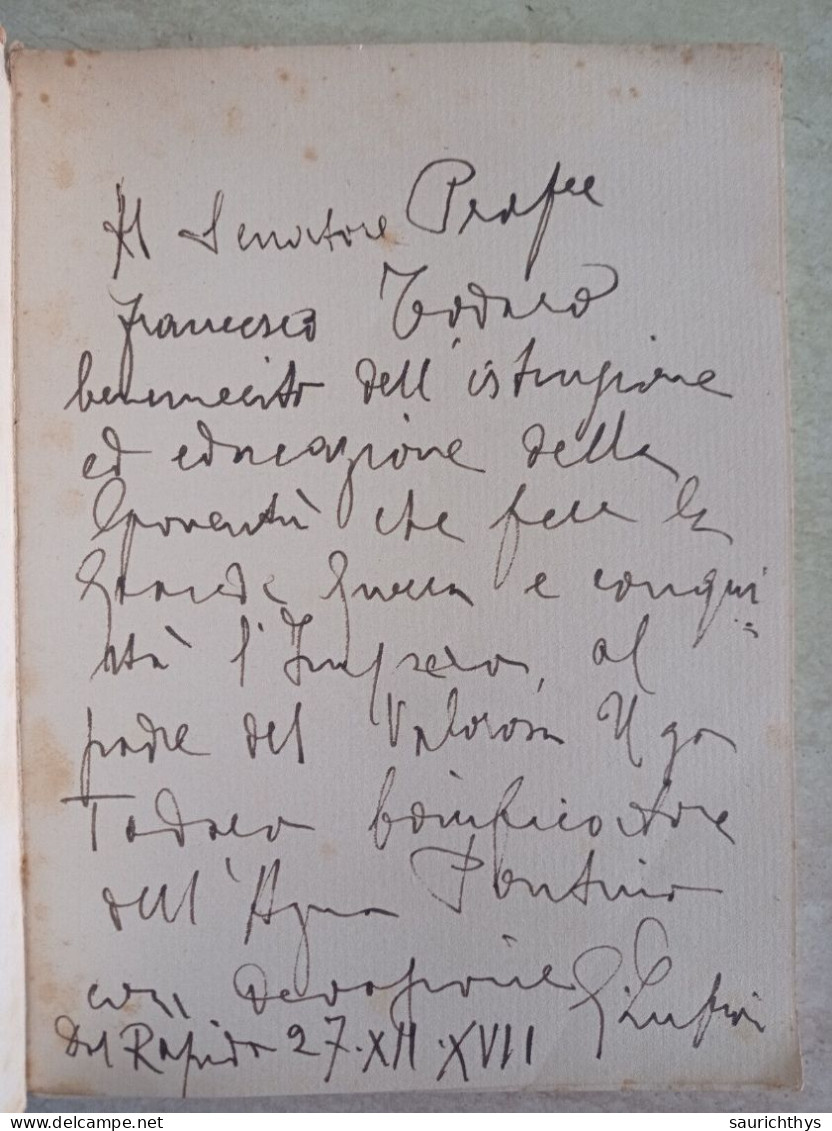 Al Senatore Prof
Francesco Todaro
benemerito dell'istruzione
ed educazione della
Gioventù che fece la
Grande Guerra e conqui=
stò l'Impero, al
padre del Valoroso Ugo
Todaro bonificatore
dell'Agro Pontino
con devozione G.
Dal Rapido 27.XII.XVII
saurichthys